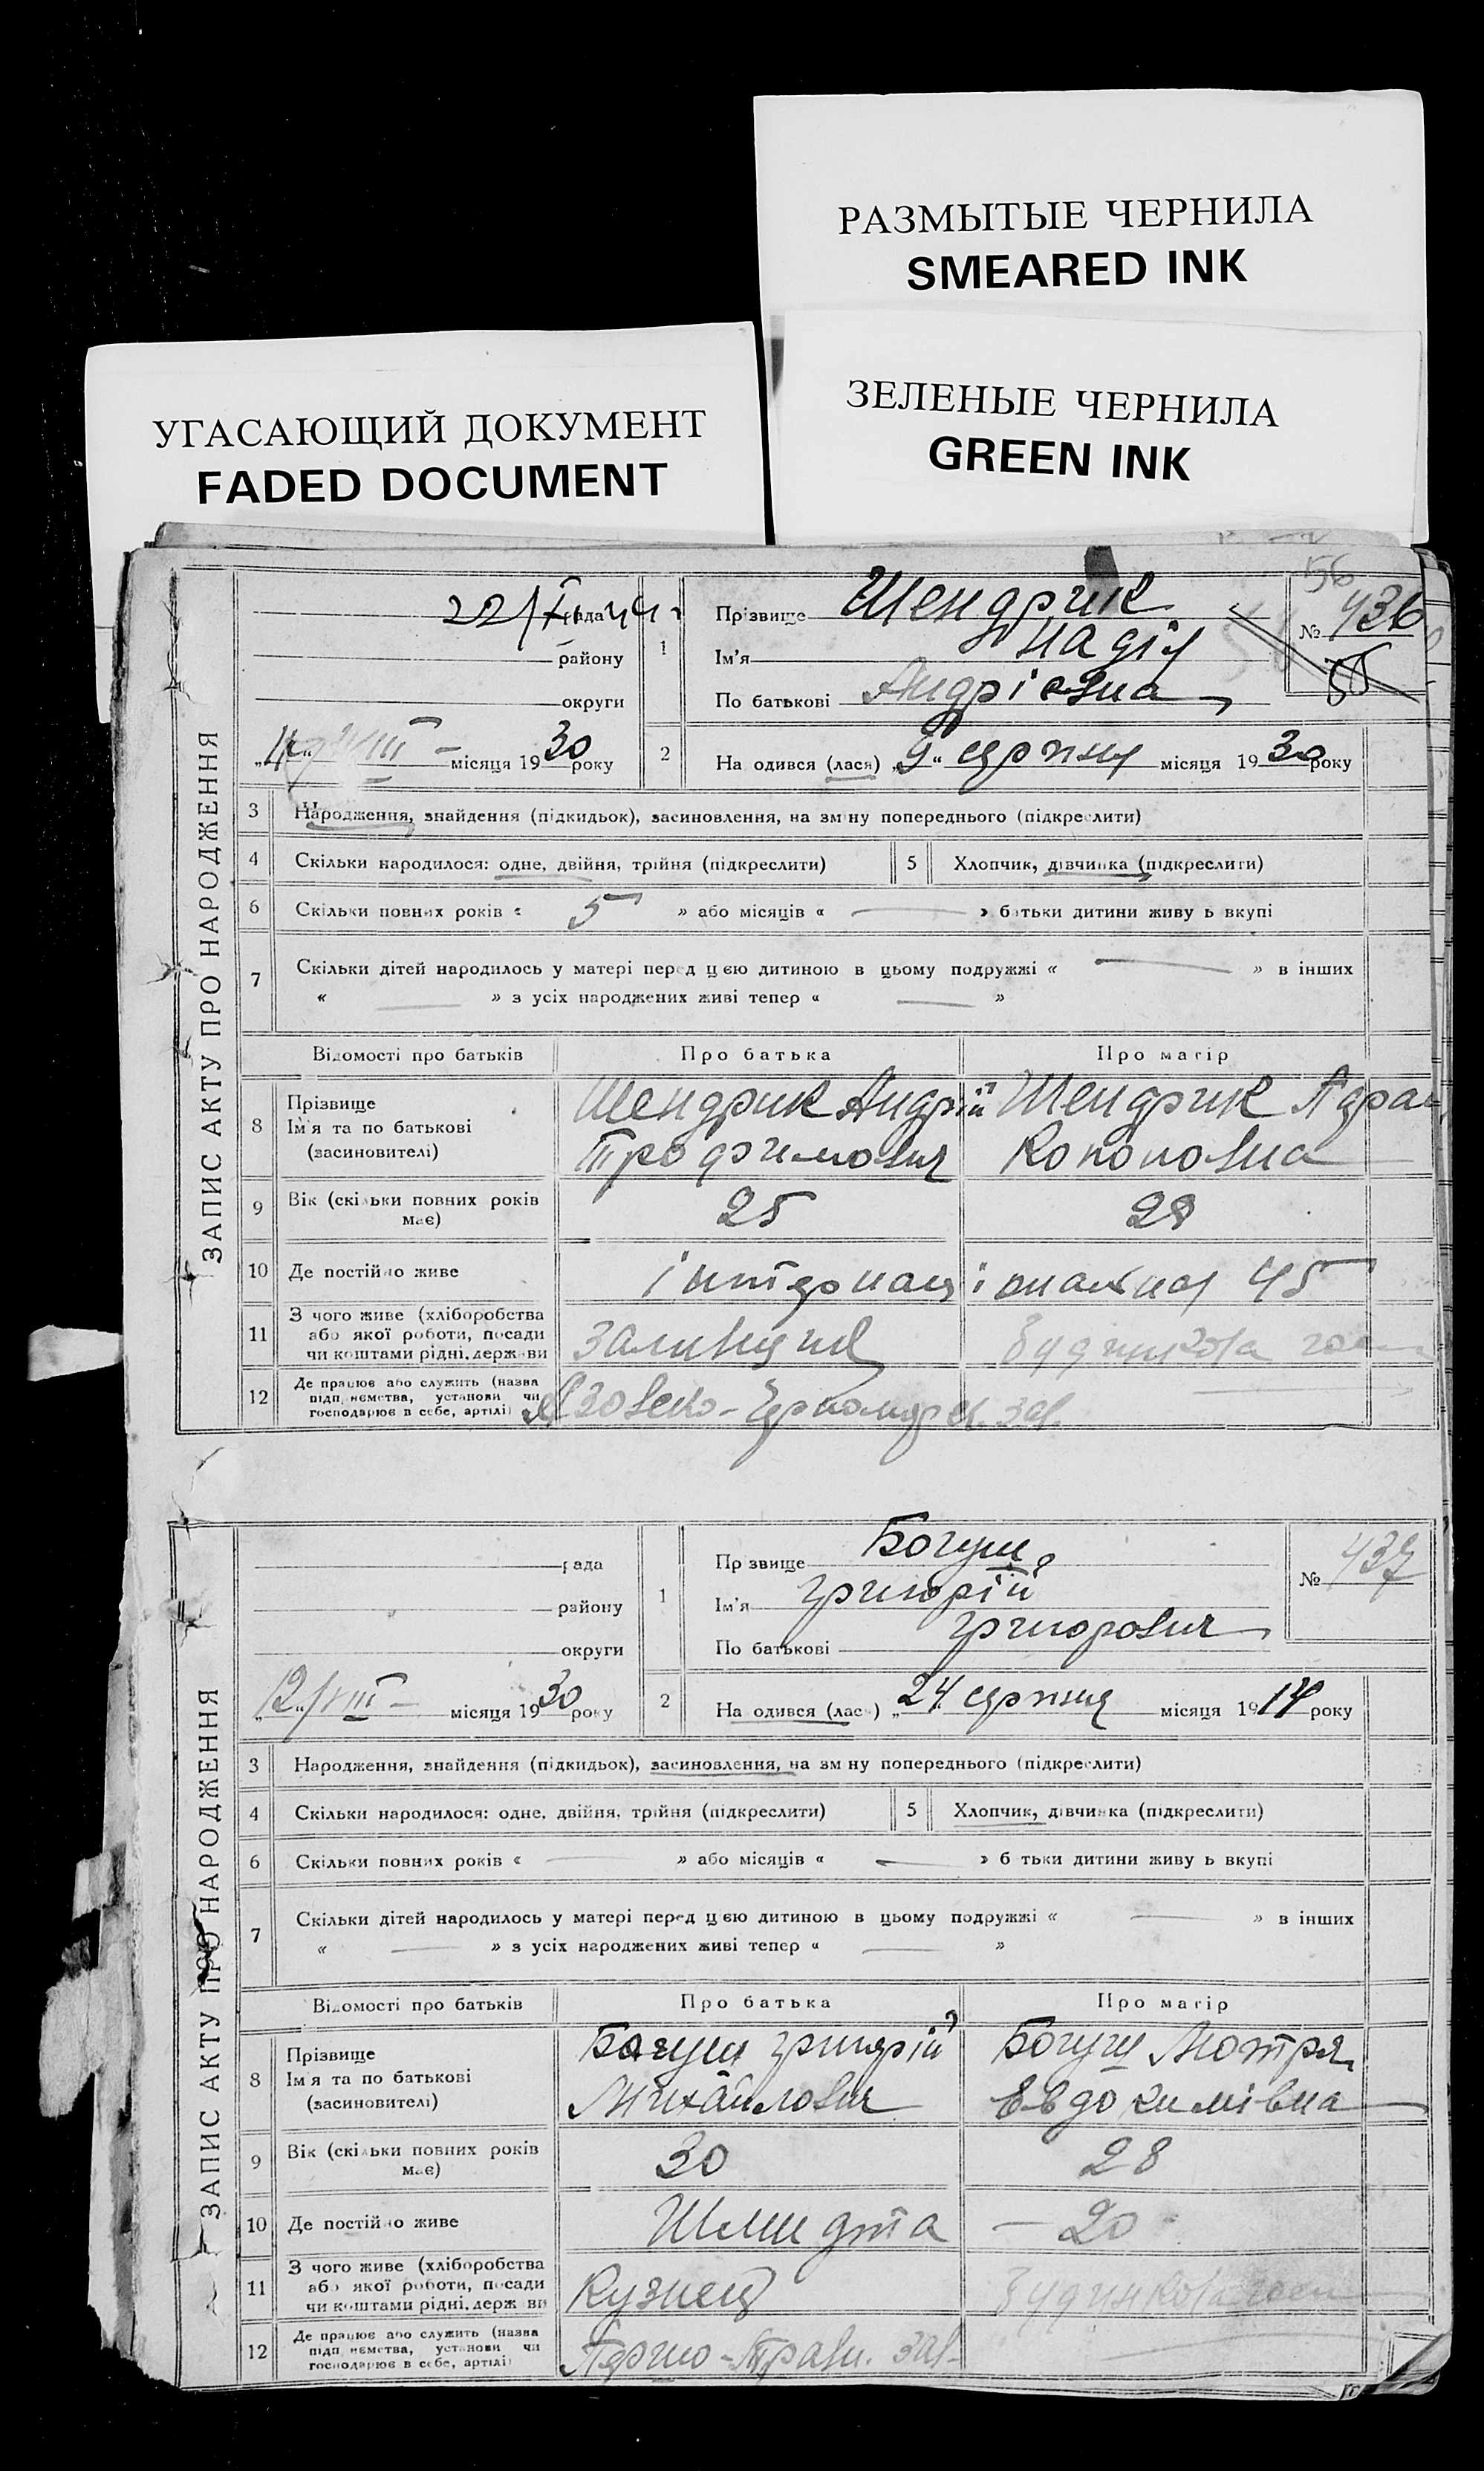 РАЗМЫТЫЕ ЧЕРНИЛА
SMEARED INK
ЗЕЛЕНЫЕ ЧЕРНИЛА
GREEN INK
УГАСАЮЩИЙ ДОКУМЕНТ
FADED DOCUMENT
56
ЗАПИС АКТУ ПРО НАРОДЖЕННЯ
рада
району
округи
місяця 1930 року
1 Прізвище Шендрик
Ім'я Надія
По батькові Андріевна
№ 436
2 На одився (лася) „9“ серпня місяця 1930 року
3 Народження, знайдення (підкидьок), засиновлення, на зм ну попереднього (підкреслити)
4 Скільки народилося: одне, двійня, трійня (підкреслити) 5 Хлопчик, дівчинка (підкреслити)
6 Скільки повних років « 5 » або місяців « — » батьки дитини живу ь вкупі
7 Скільки дітей народилось у матері перед цією дитиною в цьому подружжі « — » в інших
« — » з усіх народжених живі тепер « — »
Відомості про батьків Про батька Про матір
8 Прізвище
Ім'я та по батькові
(засновителі)
Шендрик Андрій Шендрик
Трофимович Кононовна
9 Вік (скільки повних років має) 25 28
10 Де постійно живе Інтернаціональная 45
11 З чого живе (хліборобства
або якої роботи, посади
чи коштами рідні, держави
Заливщик
12 Де працює або служить (назва
підприємства, установи чи
господарює в себе, артілі)
Азовско-Черномор
ЗАПИС АКТУ ПРО НАРОДЖЕННЯ
рада
району
округи
12/VIII— місяця 1930 року
1 Пр звище Богуш
Ім'я Григорій
По батькові Григорович
№ 437
2 На одився (лася) „24“ серпня місяця 1914 року
3 Народження, знайдення (підкидьок), засиновлення, на зм ну попереднього (підкреслити)
4 Скільки народилося: одне, двійня, трійня (підкреслити) 5 Хлопчик, дівчинка (підкреслити)
6 Скільки повних років « — » або місяців « — » б тьки дитини живу ь вкупі
7 Скільки дітей народилось у матері перед цією дитиною в цьому подружжі « — » в інших
« — » з усіх народжених живі тепер « — »
Відомості про батьків Про батька Про матір
8 Прізвище
Ім'я та по батькові
(засновителі)
Богуш Григорій Богуш Мотря
Михайлович Евдокимівна
9 Вік (скільки повних років має) 30 28
10 Де постійно живе Шмидта — 20
11 З чого живе (хліборобства
або якої роботи, посади
чи коштами рідні, держ ви
Кузнец
12 Де працює або служить (назва
підприємства, установи чи
господарює в себе, артілі)